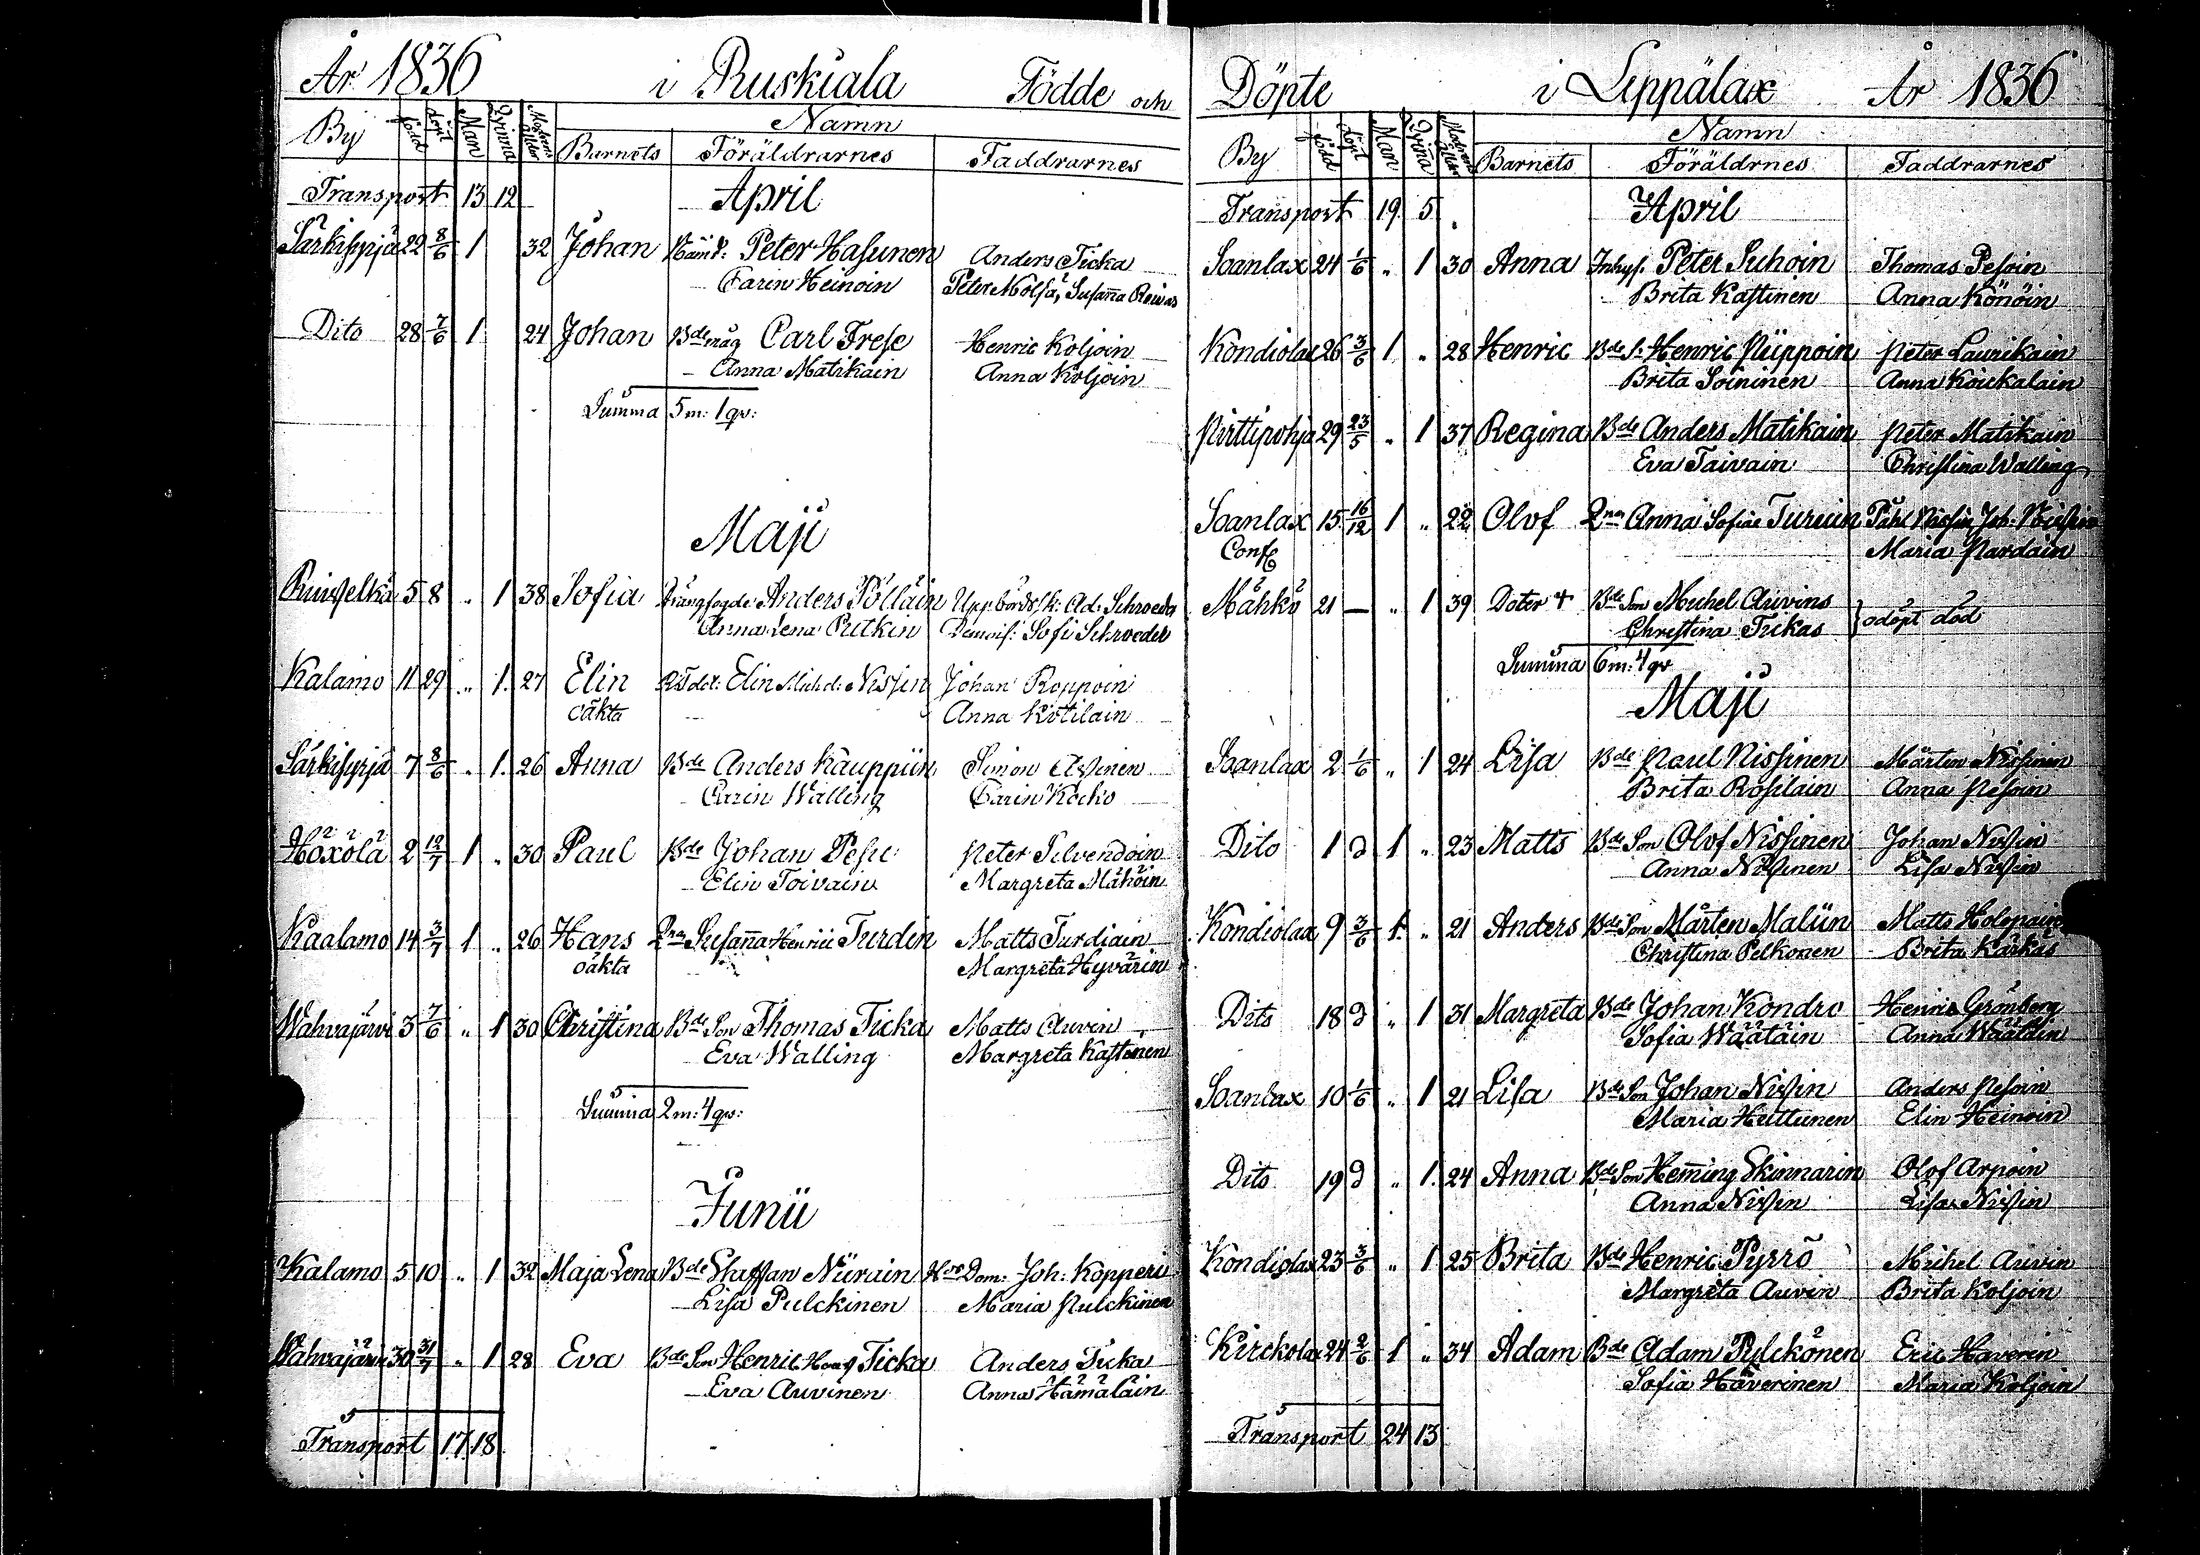 År 1836 i Ruskiala Födde och
By född döpt Man Qvinna Modrens ålder Namn
Barnets Föräldrarnes Faddrarnes
Transport 13 12 April
Särkisyrjä 29 8/6 1 32 Johan Peter Hasunen Anders Ticka
Carin Heinoin Peter Mölsä, Susanna
Dito 28 7/6 1 24 Johan Bde måg Carl Frese Henric Koljoin
Anna Matikain Anna Koljoin
Summa 5 m: 1 qv:
Maji
Ruisselkä 5 8 " 1 38 Sofia Drängfogde Anders Pölläin Uppbörds.k: Ad: Schroeder
Anna Lena Putkin Demois: Sofi Schroeder
Kalamo 11 29 " 1. 27 Elin Elin Mich.d: Nissin Johan Roppoin
oäkta Anna Kotilain
Särkisyrjä 7 8/6 " 1. 26 Anna Bde Anders Kauppiin Simon Assinen
Carin Walling Carin Kocko
Höxölä 2 12/7 1 " 30 Paul Bde Johan Pesu Peter Silvendoin
Elin Toivain Margreta Mähöin
Kaalamo 14 3/7 1 " 26 Hans Qnn Susanna Henric Turdin Matts Turdiain
oäkta Margreta Hyvärin
Wahvajärvi 3 7/6 " 1 30 Christina Bde Son Thomas Ticka Matts Auvin
Eva Walling Margreta Kastinen
Summa 2 m: 4 qv:
Junii
Kalamo 5 10 " 1 32 Maja Lena Bde Staffan Niirain Dom: Joh: Kopperi
Lisa Pulckinen Maria Pulckinen
Wahvajärvi 30 31/7 " 1 28 Eva Bde Son Henric Ticka Anders Ticka
Eva Auvinen Anna Hämäläin
Transport 17 18
Döpte i Leppälax År 1836
By född döpt Man Qvina Modrens ålder Namn
Barnets Föräldrnes Faddrarnes
Transport 19. 5 April
Soanlax 24 1/6 " 1 30 Anna Inhys. Peter Suhoin Thomas Pesoin
Brita Kastinen Anna Könöin
Kondiolax 26 3/6 1 " 28 Henric Bde S: Henric Piippoin Peter Laurikain
Brita Soininen Anna Kouckalain
Pirttipohja 29 23/5 " 1 37 Regina Bde Anders Matikain Peter Matikain
Eva Taivain Christina Walling
Soanlax 15 16/12 1 " 22 Olof Qnn Anna Sofia Påhl Nissin, Joh: Nissin
Maria Pardain
Mähkö 21 — " 1 39 Doter + Bde Son Michel Auvins odöpt död
Christina Tickas
Summa 6 m: 4 qv
Maji
Soanlax 2 1/6 " 1 24 Lisa Bde Paul Nissinen Mårten Nissinen
Brita Rossilain Anna Pesoin
Dito 1 d 1 " 23 Matts Bde Son Olof Nissinen Johan Nissin
Anna Nissinen Lisa Nissin
Kondiolax 9 3/6 1. " 21 Anders Bde Son Mårten Maliin Matts Holopain
Christina Pelkonen Brita Karkas
Dito 18 d " 1 31 Margreta Bde Johan Kondro Henric Grönberg
Sofia Wäätäin Anna Wäätäin
Soanlax 10 1/6 " 1 21 Lisa Bde Son Johan Nissin Anders Pesoin
Maria Huttunen Elin Heinoin
Dito 19 d " 1. 24 Anna Bde Son Heming Skinnarin Olof Arpoin
Anna Nissin Lisa Nissin
Kondiolax 23 3/6 " 1 25 Brita Bde Henric Pyrrö Michel Auvin
Margreta Auvin Brita Koljoin
Kirckolax 24 2/6 1 " 34 Adam Bde Adam Pylckönen Eric Haverin
Sofia Häverinen Maria Koljoin
Transport 24 13